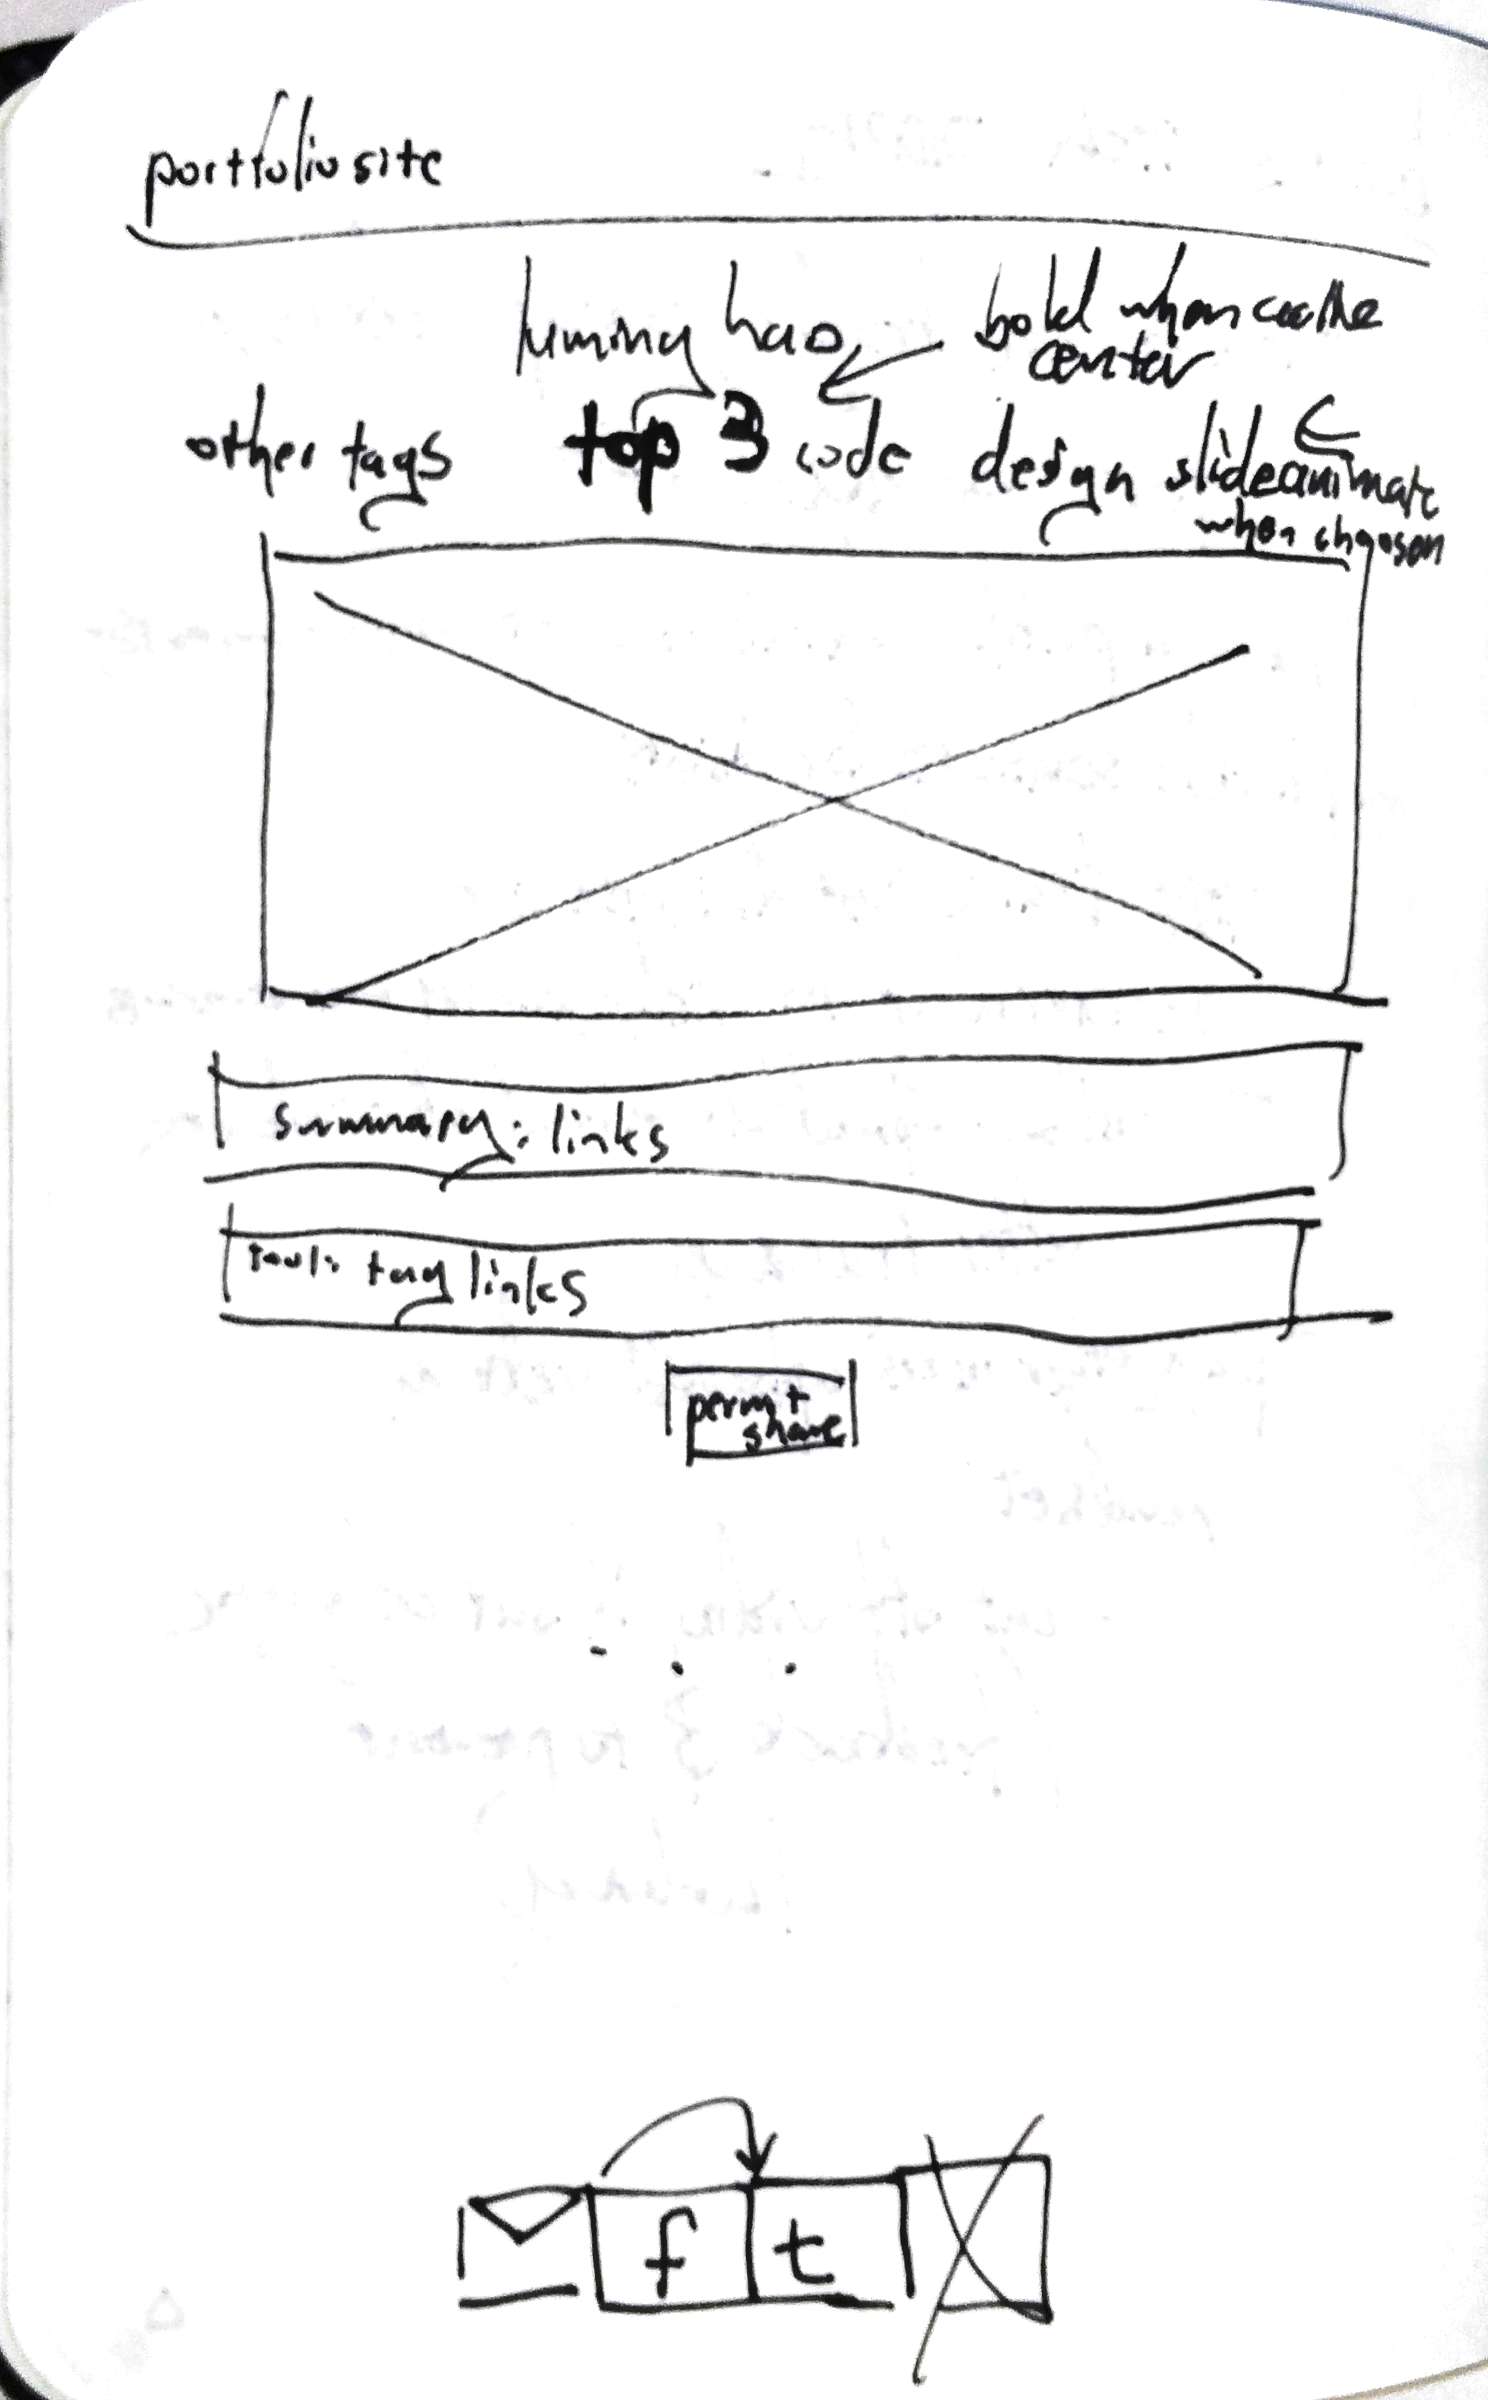 portfolio site
luming hao
bold when
center
other tags top 3 code design slide animate
when choosen
summary: links
tool: tag links
perm +
share
f t